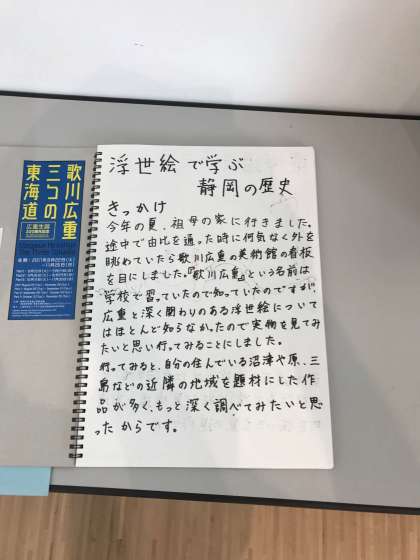 歌川広重
三つの
東海道
広重生誕
浮世絵で学ぶ
静岡の歴史
きっかけ
今年の夏、祖母の家に行きました。
途中で由比を通った時に何気なく外を
眺めていたら歌川広重の美術館の看板
を目にしました。『歌川広重』という名前は
学校で習っていたので知っていたのですが
広重と深く関わりのある浮世絵について
はほとんど知らなかったので実物を見てみ
たいと思い行ってみることにしました。
行ってみると、自分の住んでいる沼津や原、三
島などの近隣の地域を題材にした作
品が多く、もっと深く調べてみたいと思
ったからです。